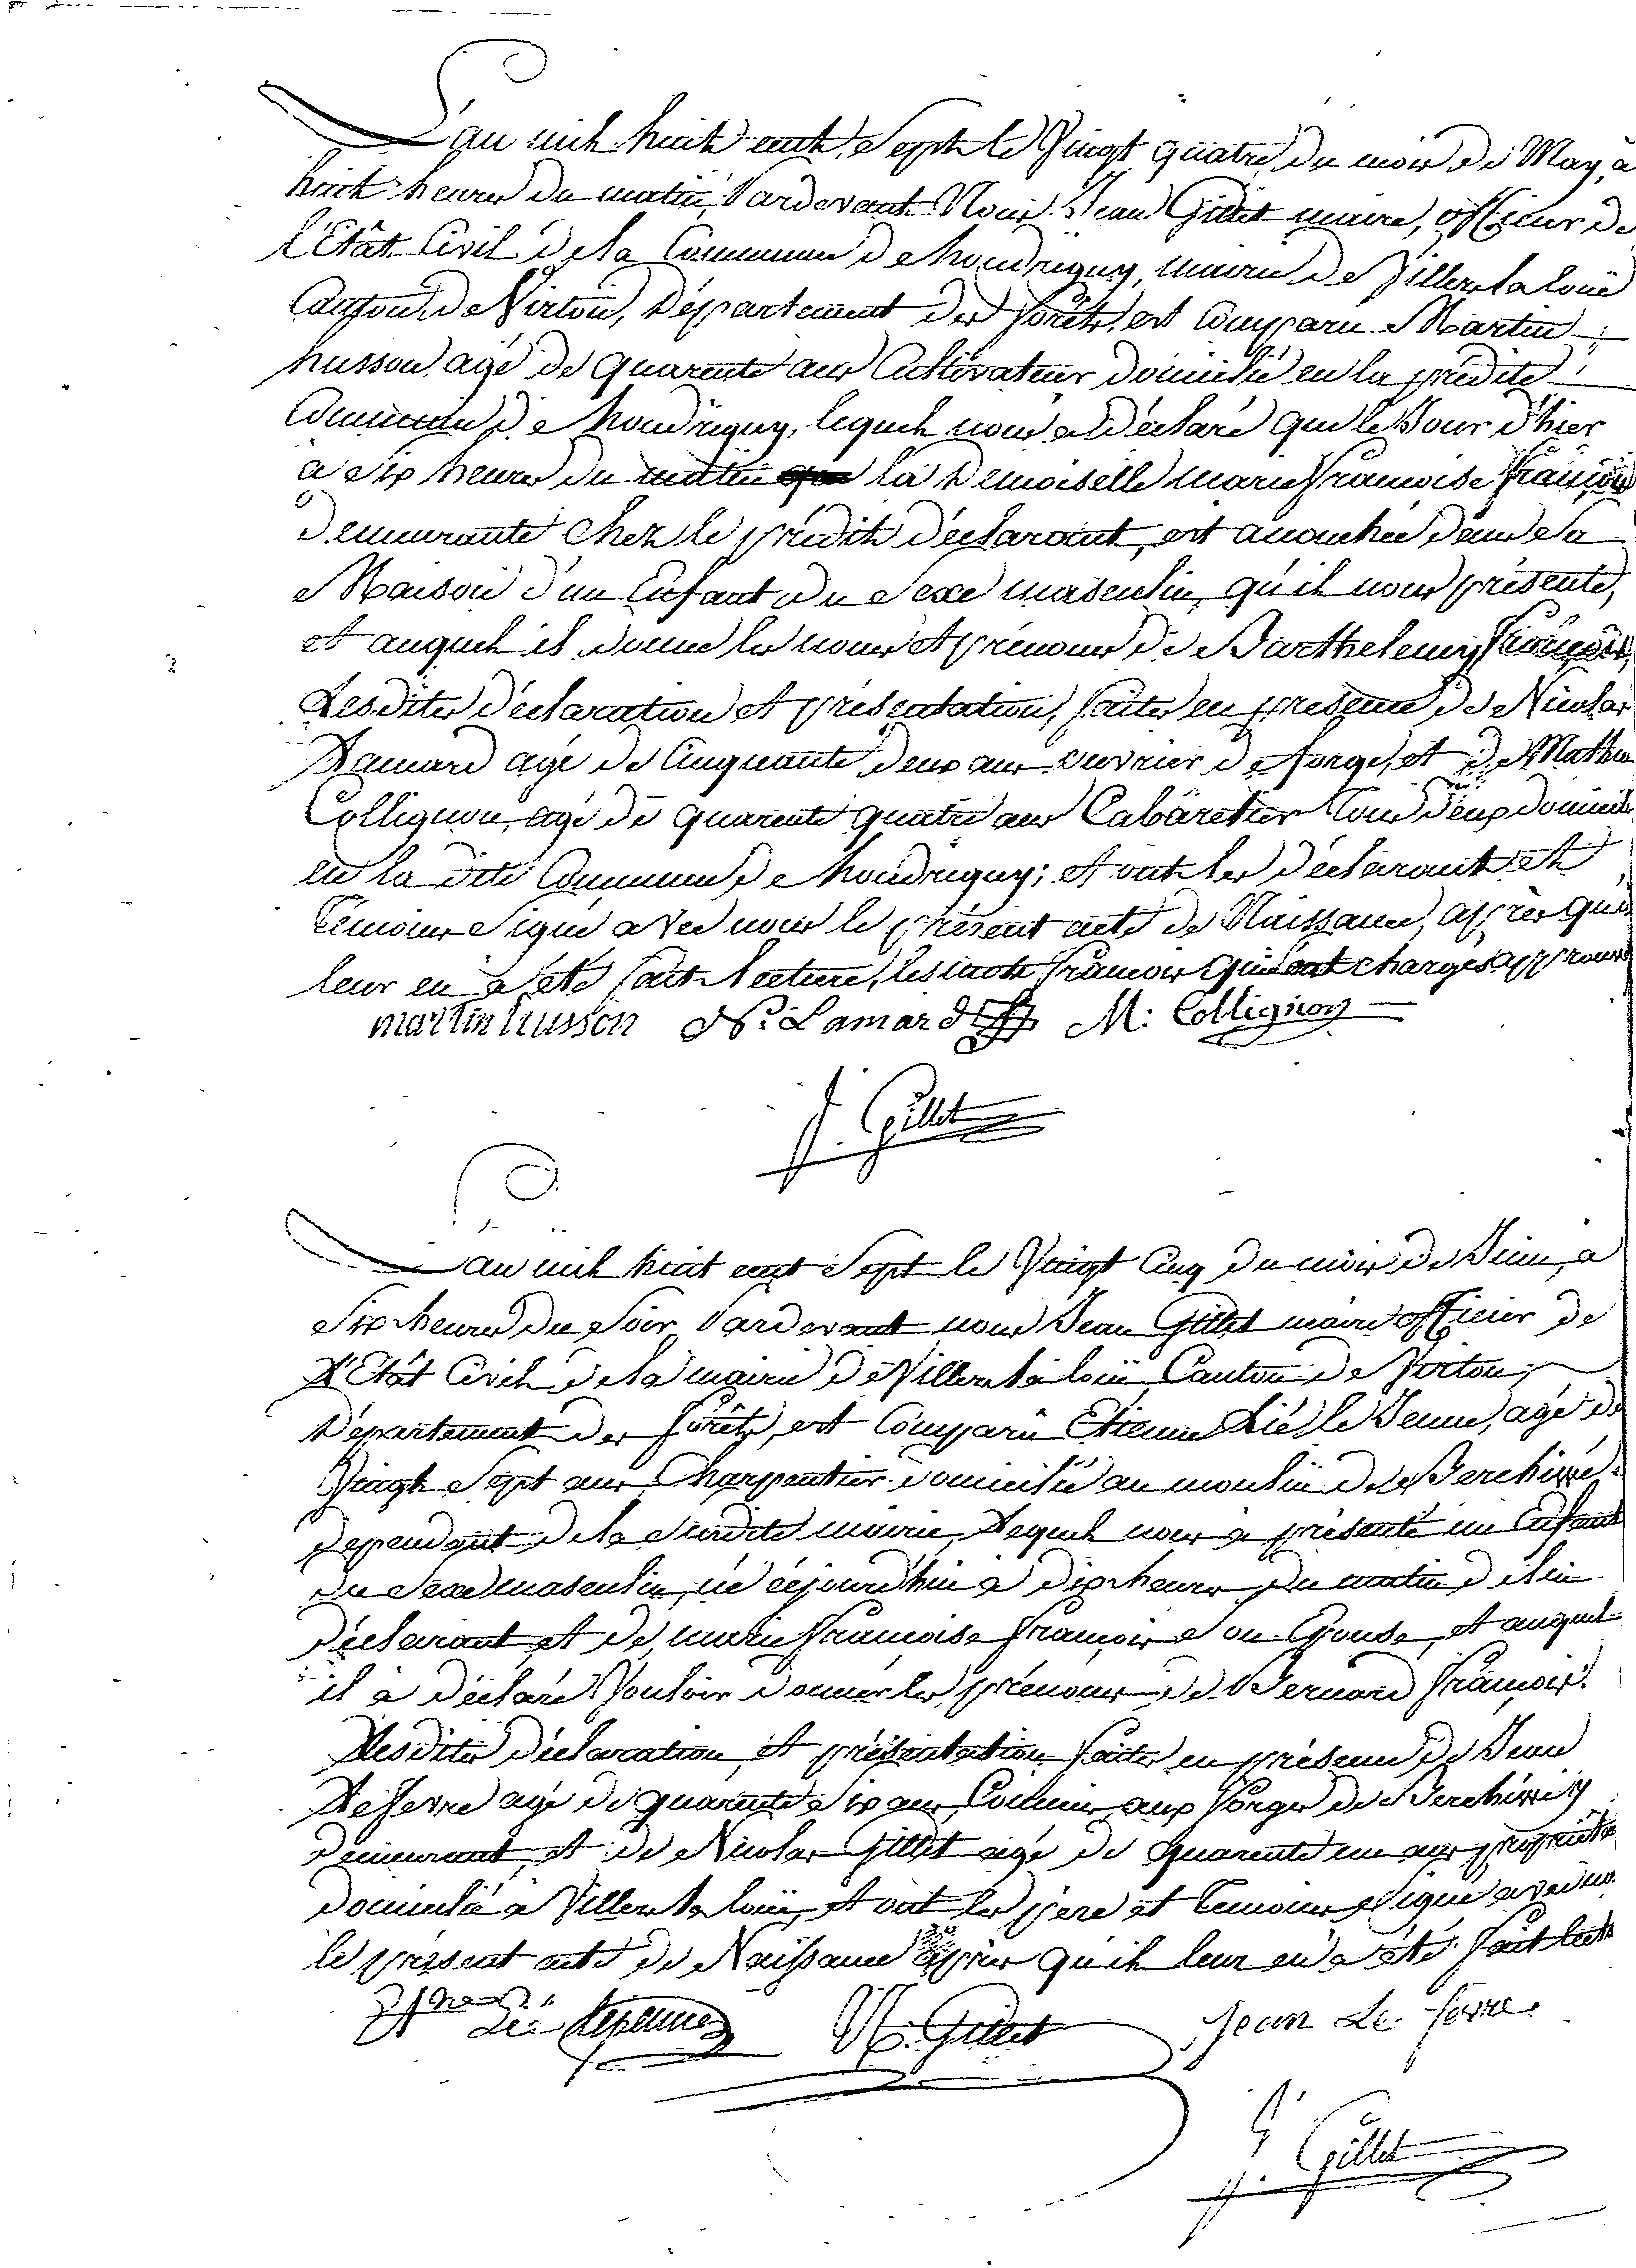 L'an mil huit cent Sept le Vingt quatre du mois de May, à
huit heures du matin, Pardevant Nous Jean Gillet maire, officier de
l'Etât Civil de la Commune de houdrigny, mairie de Villers la loüe
Canton de Virton, Département des forêts, est comparu Martin
husson, agé de quarente ans Cultivateur domicilié en la prédite
Commune de houdrigny, lequel nous a déclaré que le Jour d'hier
à Six heures du matin la Demoiselle marie françoise françois
demeurante chez le prédit déclarant, est accouchée dans sa
Maison d'un Enfant du Sexe masculin, qu'il nous présente,
et auquel il donne les noms et prénoms de Barthelemy françois,
Lesdites déclaration et présentation, faites en présence de Nicolas
Lamard agé de Cinquante deux ans ouvrier de forge, et de Mathieu
Collignon, agé de quarente quatre ans Cabâretier Tous deux domiciliés
en la dite Commune de houdrigny; et ont les déclarant et
témoins Signé avec nous le présent acte de Naissance, après que
leur en a été fait lecture, françois chargés approuvé
martin husson N: Lamard M: Collignon
J. Gillet
L'an mil huit cent Sept le Vingt Cinq du mois de Juin, à
Six heures du Soir, Pardevant nous Jean Gillet maire officier de
L'Etât Civil de la mairie de Villers la loüe, Canton de Virton,
Département des forêts, est comparû Etienne Lié le Jeune, agé de
Vingt Sept ans Charpentier domicilié au moulin de Berchiwé,
dependant de la Susdite mairie, Lequel nous a présenté un Enfant
du Sexe masculin, né cejourd'hui à dix heures du matin de lui
déclarant, et de marie françoise françois Son Epouse, et auquel
il a déclaré Vouloir donner les prénoms de Bernard françois.
Lesdites déclaration et présentation faites en présence de Jean
Lefevre agé de quarente Six ans, Commis aux forges de Berchiwé y
demeurant, et de Nicolas Gillet agé de quarente un ans propriétaire
domicilié à Villers la loüe, et ont les père et témoins Signé avec nous
le présent acte de Naissance après qu'il leur en a été fait lecture
Lié lejeune N: Gillet Jean Le fevre
J. Gillet